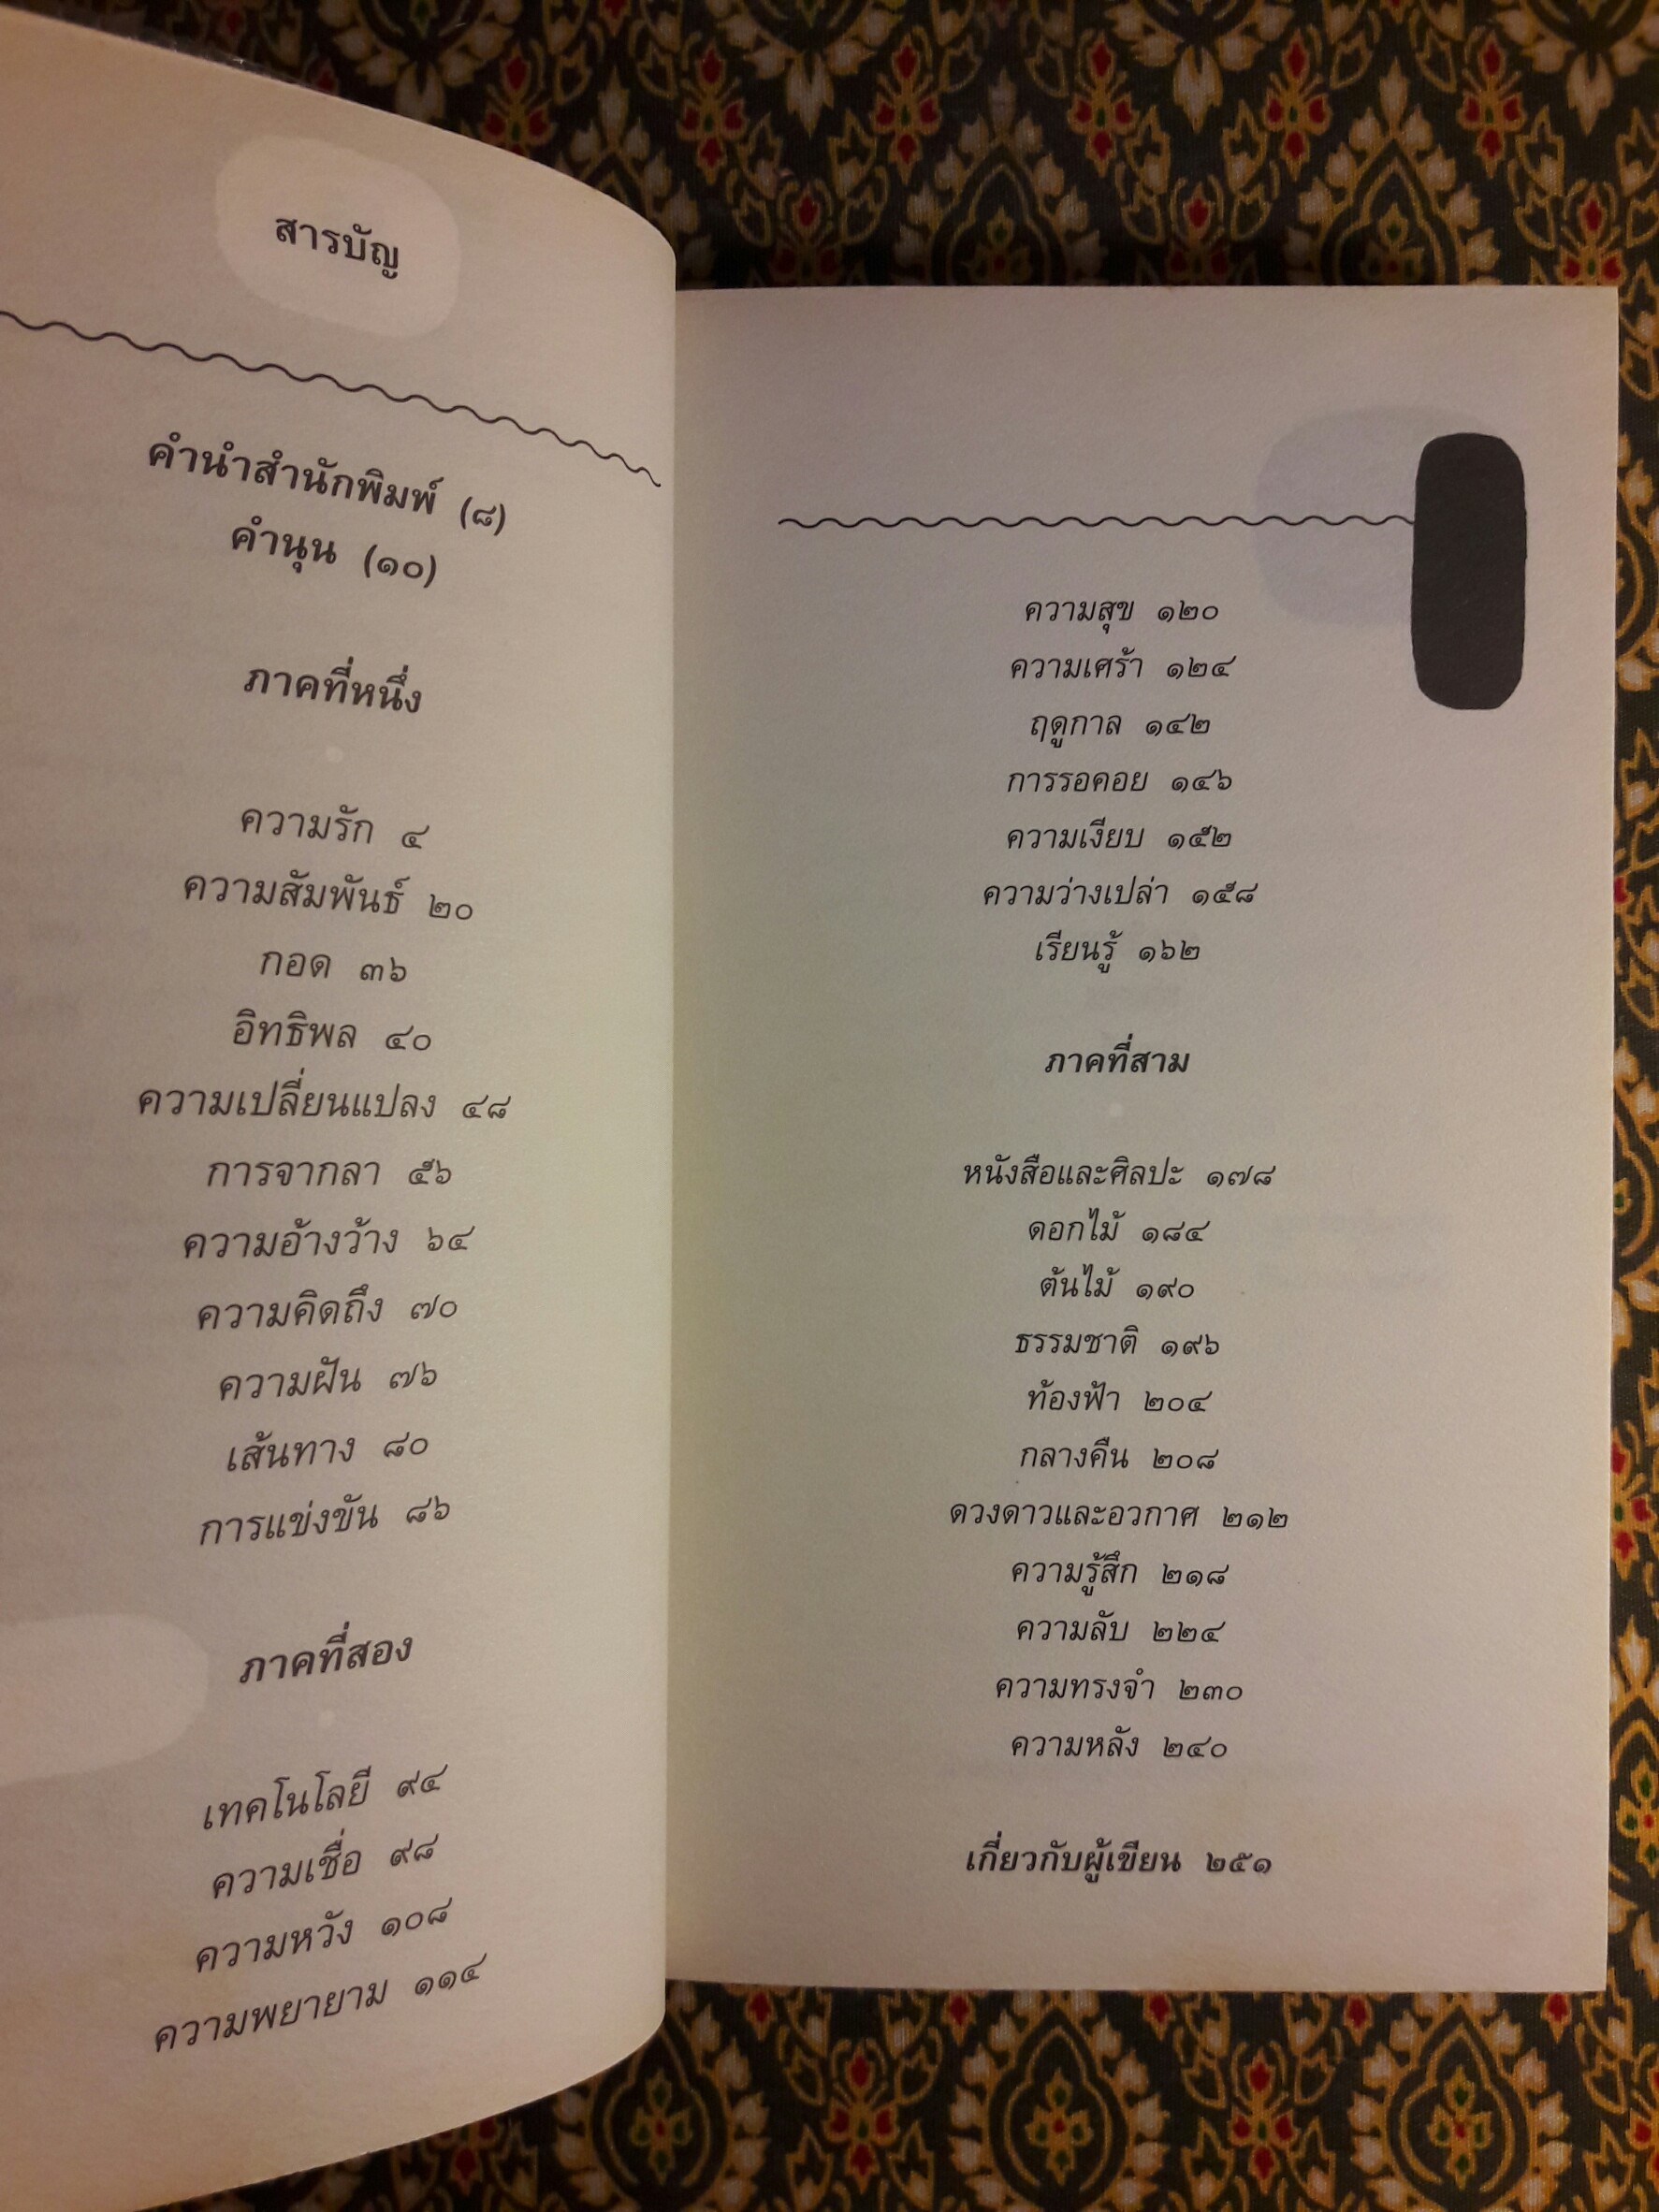 สารบัญ
คำนำสำนักพิมพ์ (๘)
คำนุน (๑๐)
ภาคที่หนึ่ง
ความรัก ๔
ความสัมพันธ์ ๒๐
กอด ๓๖
อิทธิพล ๔๐
ความเปลี่ยนแปลง ๔๘
การจากลา ๕๖
ความอ้างว้าง ๖๔
ความคิดถึง ๗๐
ความฝัน ๗๖
เส้นทาง ๘๐
การแข่งขัน ๘๖
ภาคที่สอง
เทคโนโลยี ๙๔
ความเชื่อ ๙๘
ความหวัง ๑๐๘
ความพยายาม ๑๑๔
ความสุข ๑๒๐
ความเศร้า ๑๒๔
ฤดูกาล ๑๔๒
การรอคอย ๑๔๖
ความเงียบ ๑๕๒
ความว่างเปล่า ๑๕๘
เรียนรู้ ๑๖๒
ภาคที่สาม
หนังสือและศิลปะ ๑๗๘
ดอกไม้ ๑๘๔
ต้นไม้ ๑๙๐
ธรรมชาติ ๑๙๖
ท้องฟ้า ๒๐๔
กลางคืน ๒๐๘
ดวงดาวและอวกาศ ๒๑๒
ความรู้สึก ๒๑๘
ความลับ ๒๒๔
ความทรงจำ ๒๓๐
ความหลัง ๒๔๐
เกี่ยวกับผู้เขียน ๒๕๑